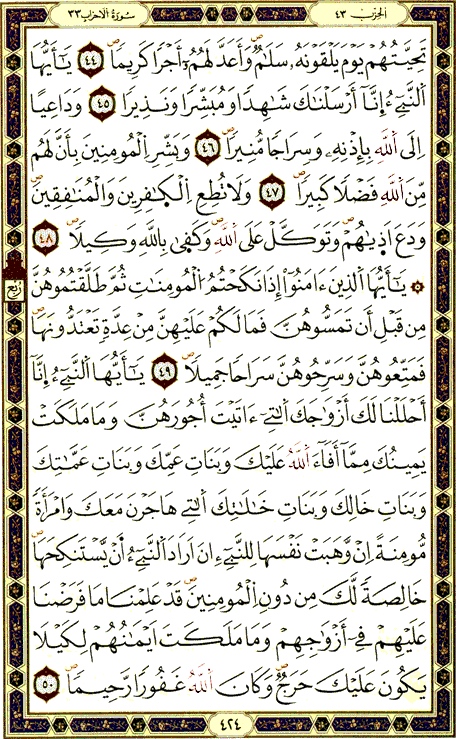 الْحِزْبُ ٤٣
سُورَةُ الْأَحْزَابِ ٣٣
تَحِيَّتُهُمْ يَوْمَ يَلْقَوْنَهُۥ سَلَٰمٌۖ وَأَعَدَّ لَهُمُۥٓ أَجْرًا كَرِيمًاۖ ٤٤ يَٰٓأَيُّهَا
اَ۬لنَّبِےٓءُ اِ۪نَّآ أَرْسَلْنَٰكَ شَٰهِدًا وَمُبَشِّرًا وَنَذِيرًا ٤٥ وَدَاعِيًا
اِلَى اَ۬للَّهِ بِإِذْنِهِۦ وَسِرَاجًا مُّنِيرًاۖ ٤٦ وَبَشِّرِ اِ۬لْمُومِنِينَ بِأَنَّ لَهُم
مِّنَ اَ۬للَّهِ فَضْلًا كَبِيرًاۖ ٤٧ وَلَا تُطِعِ اِ۬لْكٰ۪فِرِينَ وَالْمُنَٰفِقِينَ
وَدَعَ اَذ۪يٰهُمْۖ وَتَوَكَّلْ عَلَى اَ۬للَّهِۖ وَكَف۪يٰ بِاللَّهِ وَكِيلًاۖ ٤٨
رُبُع
۞ يَٰٓأَيُّهَا اَ۬لذِينَ ءَامَنُوٓاْ إِذَا نَكَحْتُمُ اُ۬لْمُومِنَٰتِ ثُمَّ طَلَّقْتُمُوهُنَّ
مِن قَبْلِ أَن تَمَسُّوهُنَّ فَمَا لَكُمْ عَلَيْهِنَّ مِنْ عِدَّةٍ تَعْتَدُّونَهَاۖ
فَمَتِّعُوهُنَّ وَسَرِّحُوهُنَّ سَرَاحًا جَمِيلًاۖ ٤٩ يَٰٓأَيُّهَا اَ۬لنَّبِےٓءُ اِ۪نَّآ
أَحْلَلْنَا لَكَ أَزْوَٰجَكَ اَ۬لٰتِےٓ ءَاتَيْتَ أُجُورَهُنَّ وَمَا مَلَكَتْ
يَمِينُكَ مِمَّآ أَفَآءَ اَ۬للَّهُ عَلَيْكَ وَبَنَاتِ عَمِّكَ وَبَنَاتِ عَمَّٰتِكَ
وَبَنَاتِ خَالِكَ وَبَنَاتِ خَٰلَٰتِكَ اَ۬لٰتِے هَاجَرْنَ مَعَكَ وَامْرَأَةً
مُّومِنَةً اِنْ وَّهَبَتْ نَفْسَهَا لِلنَّبِےٓءِ انَ اَرَادَ اَ۬لنَّبِےٓءُ اَ۬نْ يَّسْتَنكِحَهَاۖ
خَالِصَةً لَّكَ مِن دُونِ اِ۬لْمُومِنِينَۖ قَدْ عَلِمْنَا مَا فَرَضْنَا
عَلَيْهِمْ فِےٓ أَزْوَٰجِهِمْ وَمَا مَلَكَتَ اَيْمَٰنُهُمْ لِكَيْلَا
يَكُونَ عَلَيْكَ حَرَجٌۖ وَكَانَ اَ۬للَّهُ غَفُورًا رَّحِيمًاۖ ٥٠
٤٢٤